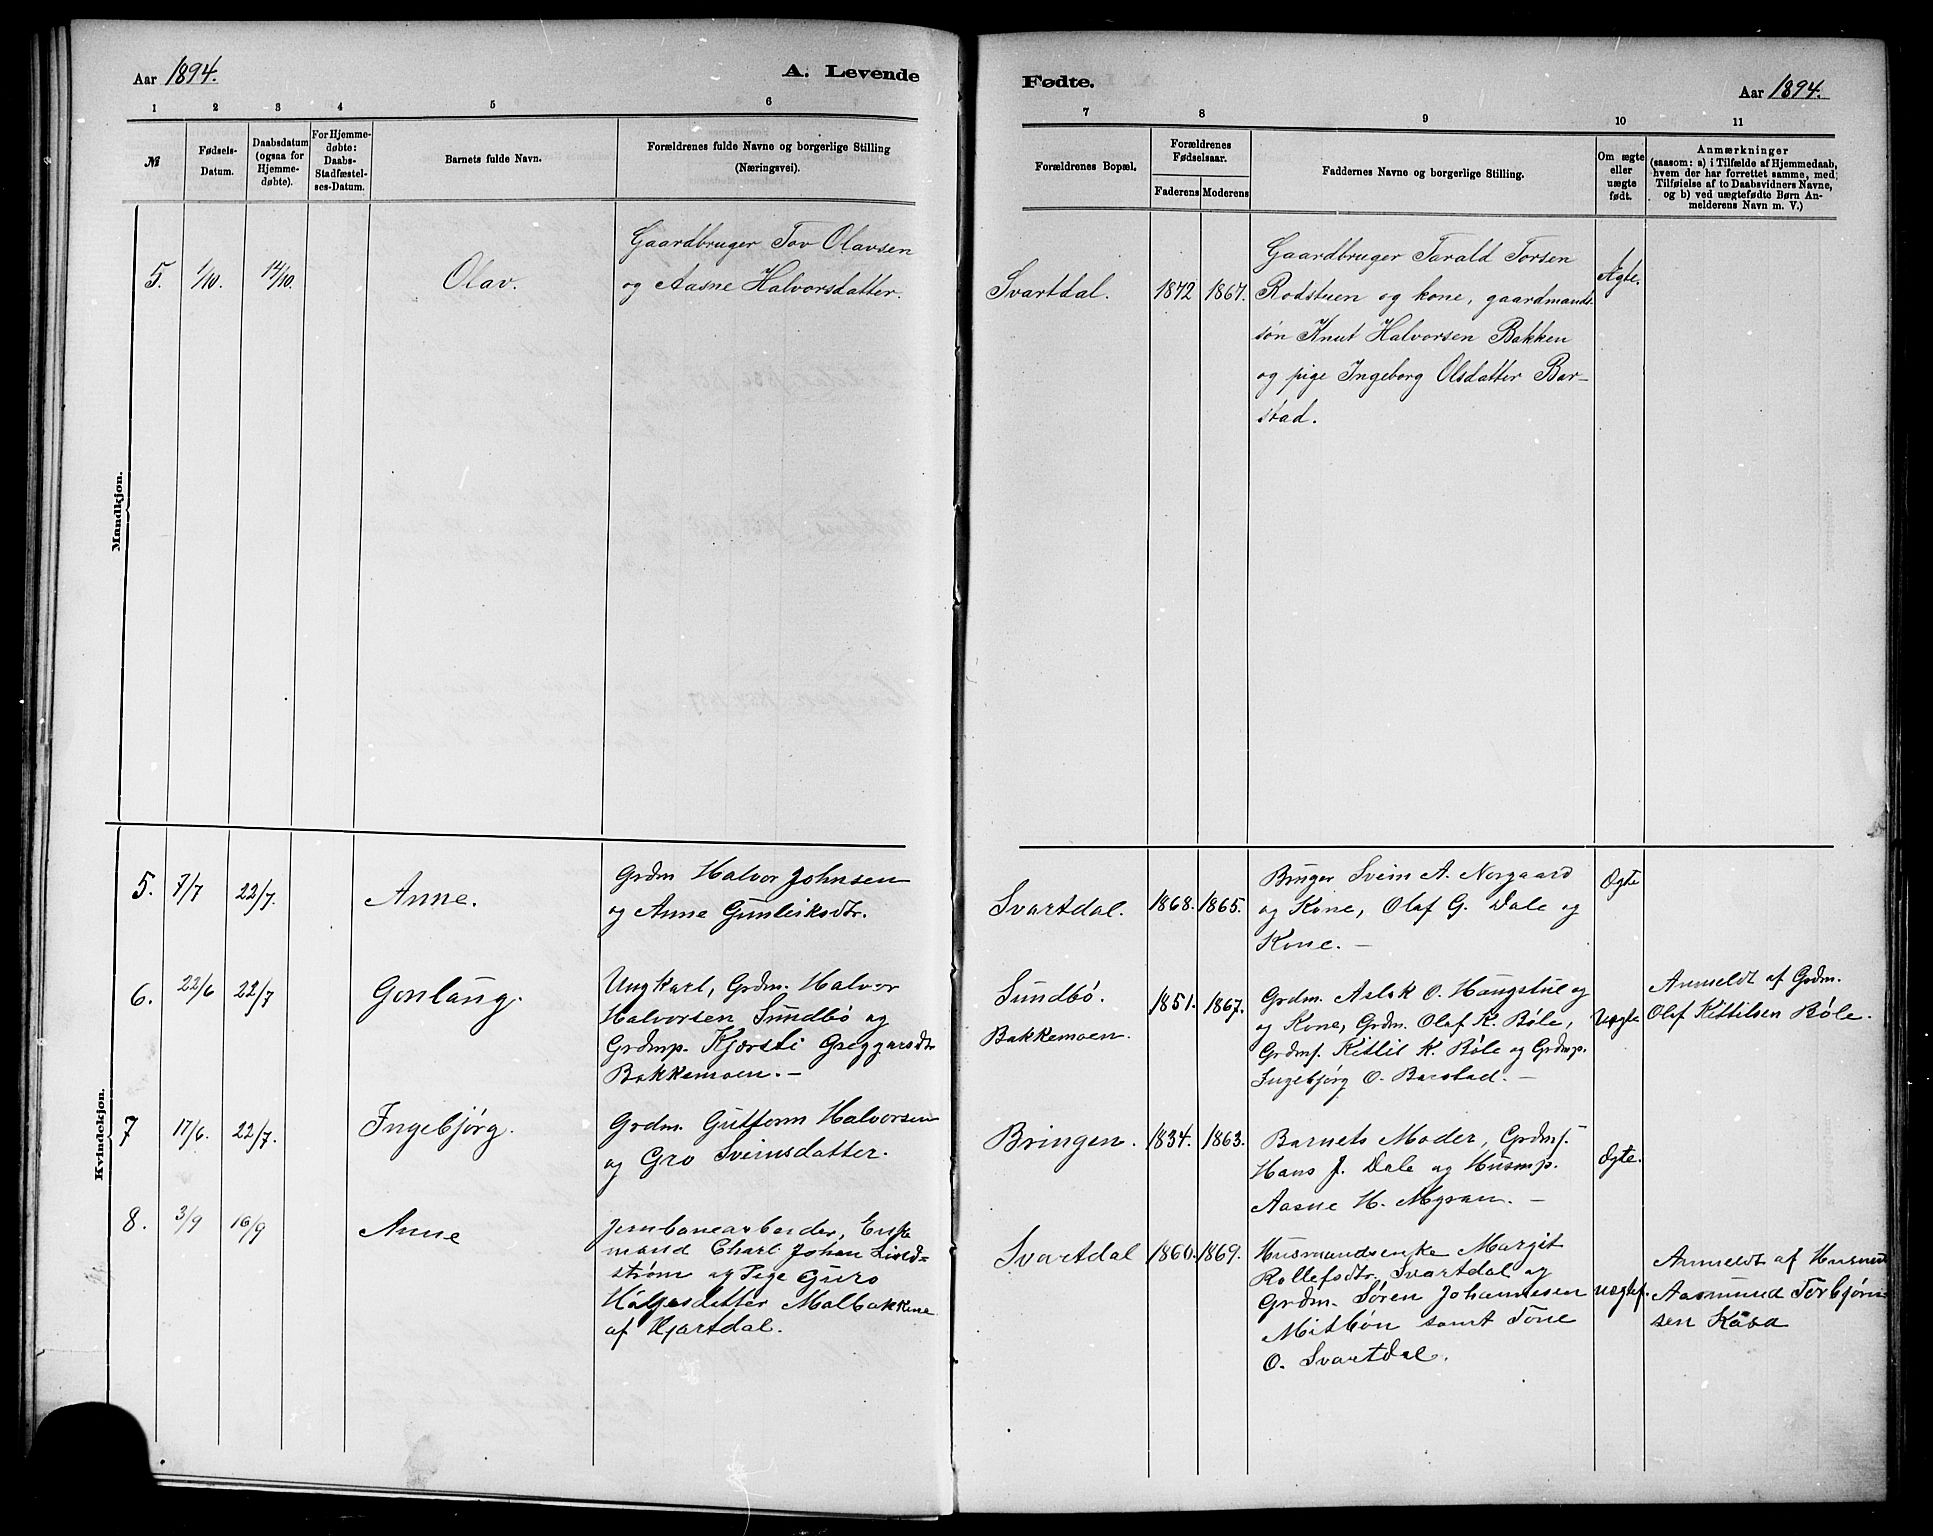 Aar 1894.
A. Levende
Fødte.
Aar 1894.
1 2 3 4 5 6
7 8 9 10 11
№
Fødsels-
Datum.
Daabsdatum
(ogsaa for
Hjemme-
døbte).
For Hjemme-
døbte:
Daabs-
Stadfæstel-
ses-Datum.
Barnets fulde Navn.
Forældrenes fulde Navne og borgerlige Stilling
(Næringsvei).
Forældrenes Bopæl.
Forældrenes
Fødselsaar.
Faderens Moderens
Faddernes Navne og borgerlige Stilling.
Om ægte
eller
uægte
født.
Anmærkninger
(saasom: a) i Tilfælde af Hjemmedaab,
hvem der har forrettet samme, med
Tilføielse af to Daabsvidners Navne,
og b) ved uægtefødte Børn An-
melderens Navn m. V.)
Mandkjøn.
5. 1/10. 14/10. Olav.
Gaardbruger Tov Olavsen
og Aasne Halvorsdatter.
Svartdal. 1872 1867.
Gaardbruger Tarald Torsen
Rodstuen og kone, gaardmands-
søn Knut Halvorsen Bakken
og pige Ingeborg Olsdatter Bar-
stad.
Ægte.
Kvindekjøn.
5. 7/7 22/7. Anne.
Grdm Halvor Johnsen
og Anne Gunleiksdtr.
Svartdal. 1868. 1865.
Bruger Svein A. Norgaard
og Kone, Olaf G. Dale og
Kone. —
Ægte
6. 22/6 22/7 Gonlaug.
Ungkarl, Grdm. Halvor
Halvorsen Sundbø og
Grdmp. Kjersti Greggarsdtr
Bakkemoen. —
Sundbø.
Bakkemoen.
1851. 1867.
Grdm. Aslak O. Haugstue og
og Kone, Grdm. Olaf K. Bøle,
Grdms. Kitlil K. Bøle og Grdmp.
Ingebjørg O. Barstad. —
Uægte
Anmeldt af Grdm.
Olaf Kittilsen Bøle.
7 17/6. 22/7. Ingebjørg.
Grdm. Guttorm Halvorsen
og Gro Sveinsdatter.
Bringen. 1834. 1863.
Barnets Moder, Grdms.
Hans J. Dale og Husmp.
Aasne H. Myran. —
Ægte.
8. 3/9 16/9 Anne
Jernbanearbeider, Enke
mand Charl. Johan Lind=
strøm og Pige Guro
Helgesdatter Malbakkene
af Hjartdal.
Svartdal 1860. 1869.
Husmandsenke Margit
Rollefsdtr. Svartdal og
Grdm. Søren Johannesen
Mitbøn samt Tone
O. Svartdal.
uægtef.
Anmeldt af Husmd
Aasmund Torbjørn
sen Kaasa